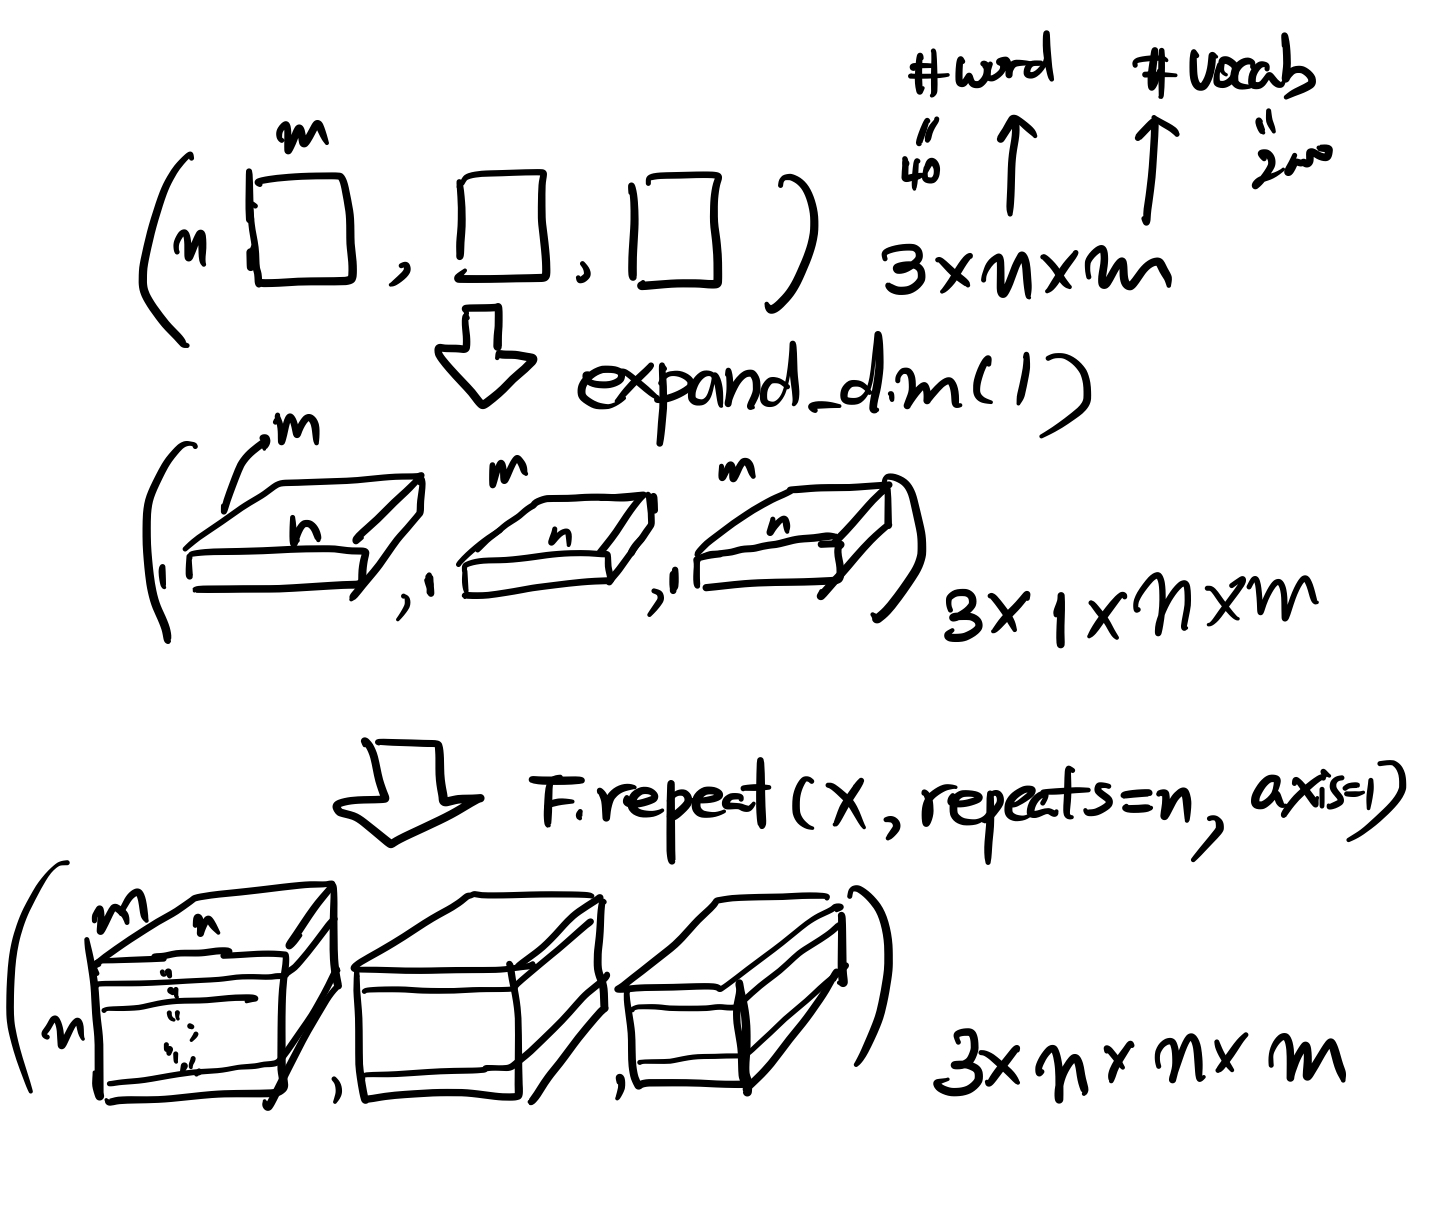 #word #vocab
" "
40 2000
m
( n , , ) 3×n×m
expand_dim(1)
m m m
( 1 n , 1 n , 1 n ) 3×1×n×m
F.repeat(x, repeats=n, axis=1)
m n
( n , , ) 3×n×n×m